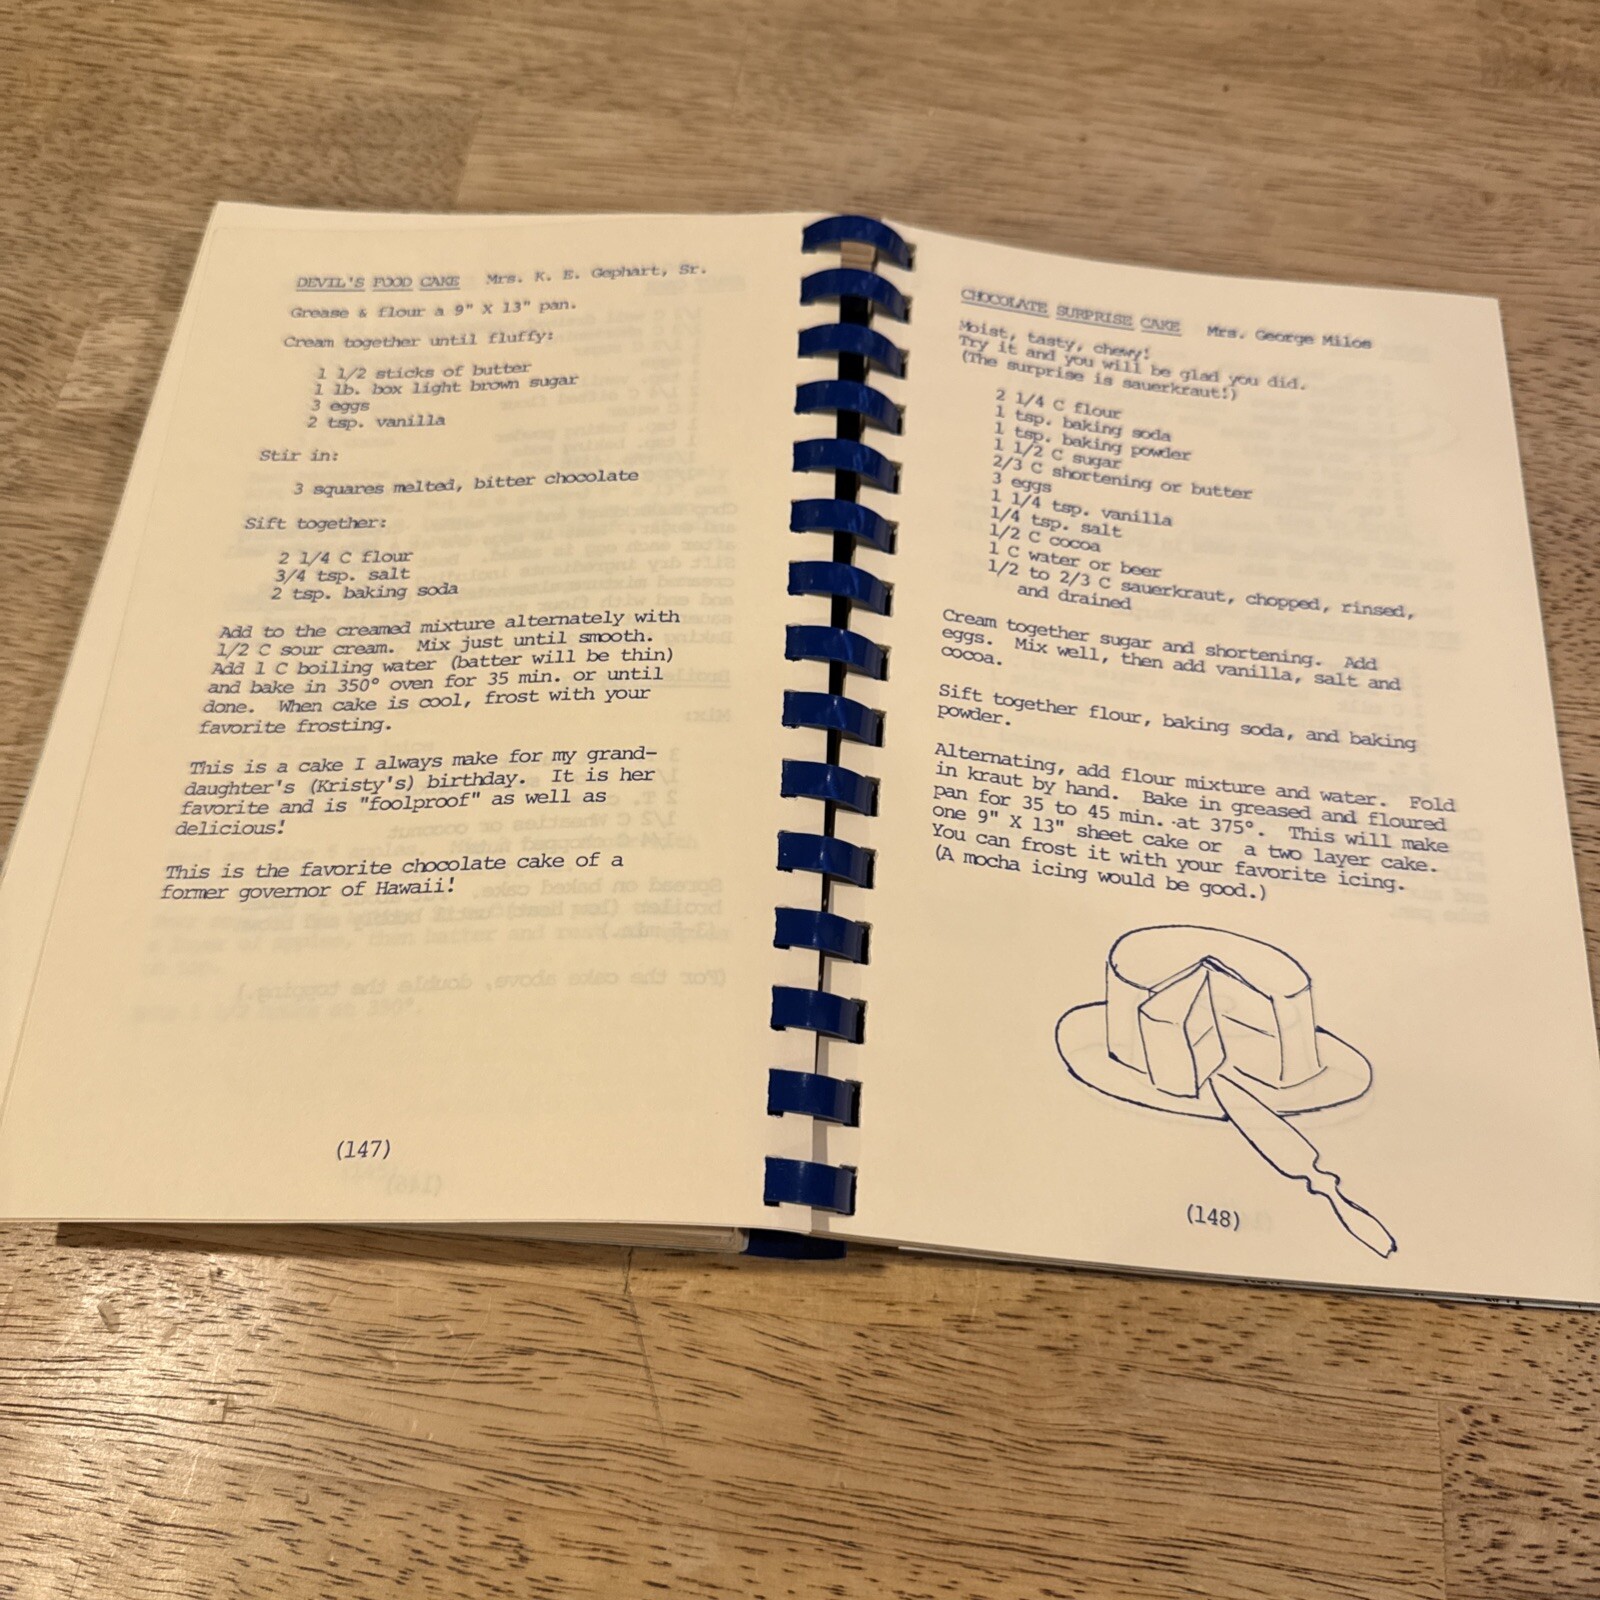 DEVIL'S FOOD CAKE Mrs. K. E. Gephart, Sr.
Grease & flour a 9" X 13" pan.
Cream together until fluffy:
1 1/2 sticks of butter
1 lb. box light brown sugar
3 eggs
2 tsp. vanilla
Stir in:
3 squares melted, bitter chocolate
Sift together:
2 1/4 C flour
3/4 tsp. salt
2 tsp. baking soda
Add to the creamed mixture alternately with
1/2 C sour cream. Mix just until smooth.
Add 1 C boiling water (batter will be thin)
and bake in 350° oven for 35 min. or until
done. When cake is cool, frost with your
favorite frosting.
This is a cake I always make for my grand-
daughter's (Kristy's) birthday. It is her
favorite and is "foolproof" as well as
delicious!
This is the favorite chocolate cake of a
former governor of Hawaii!
(147)
CHOCOLATE SURPRISE CAKE Mrs. George Milos
Moist, tasty, chewy!
Try it and you will be glad you did.
(The surprise is sauerkraut!)
2 1/4 C flour
1 tsp. baking soda
1 tsp. baking powder
1 1/2 C sugar
2/3 C shortening or butter
3 eggs
1 1/4 tsp. vanilla
1/4 tsp. salt
1/2 C cocoa
1 C water or beer
1/2 to 2/3 C sauerkraut, chopped, rinsed,
and drained
Cream together sugar and shortening. Add
eggs. Mix well, then add vanilla, salt and
cocoa.
Sift together flour, baking soda, and baking
powder.
Alternating, add flour mixture and water. Fold
in kraut by hand. Bake in greased and floured
pan for 35 to 45 min. at 375°. This will make
one 9" X 13" sheet cake or a two layer cake.
You can frost it with your favorite icing.
(A mocha icing would be good.)
(148)